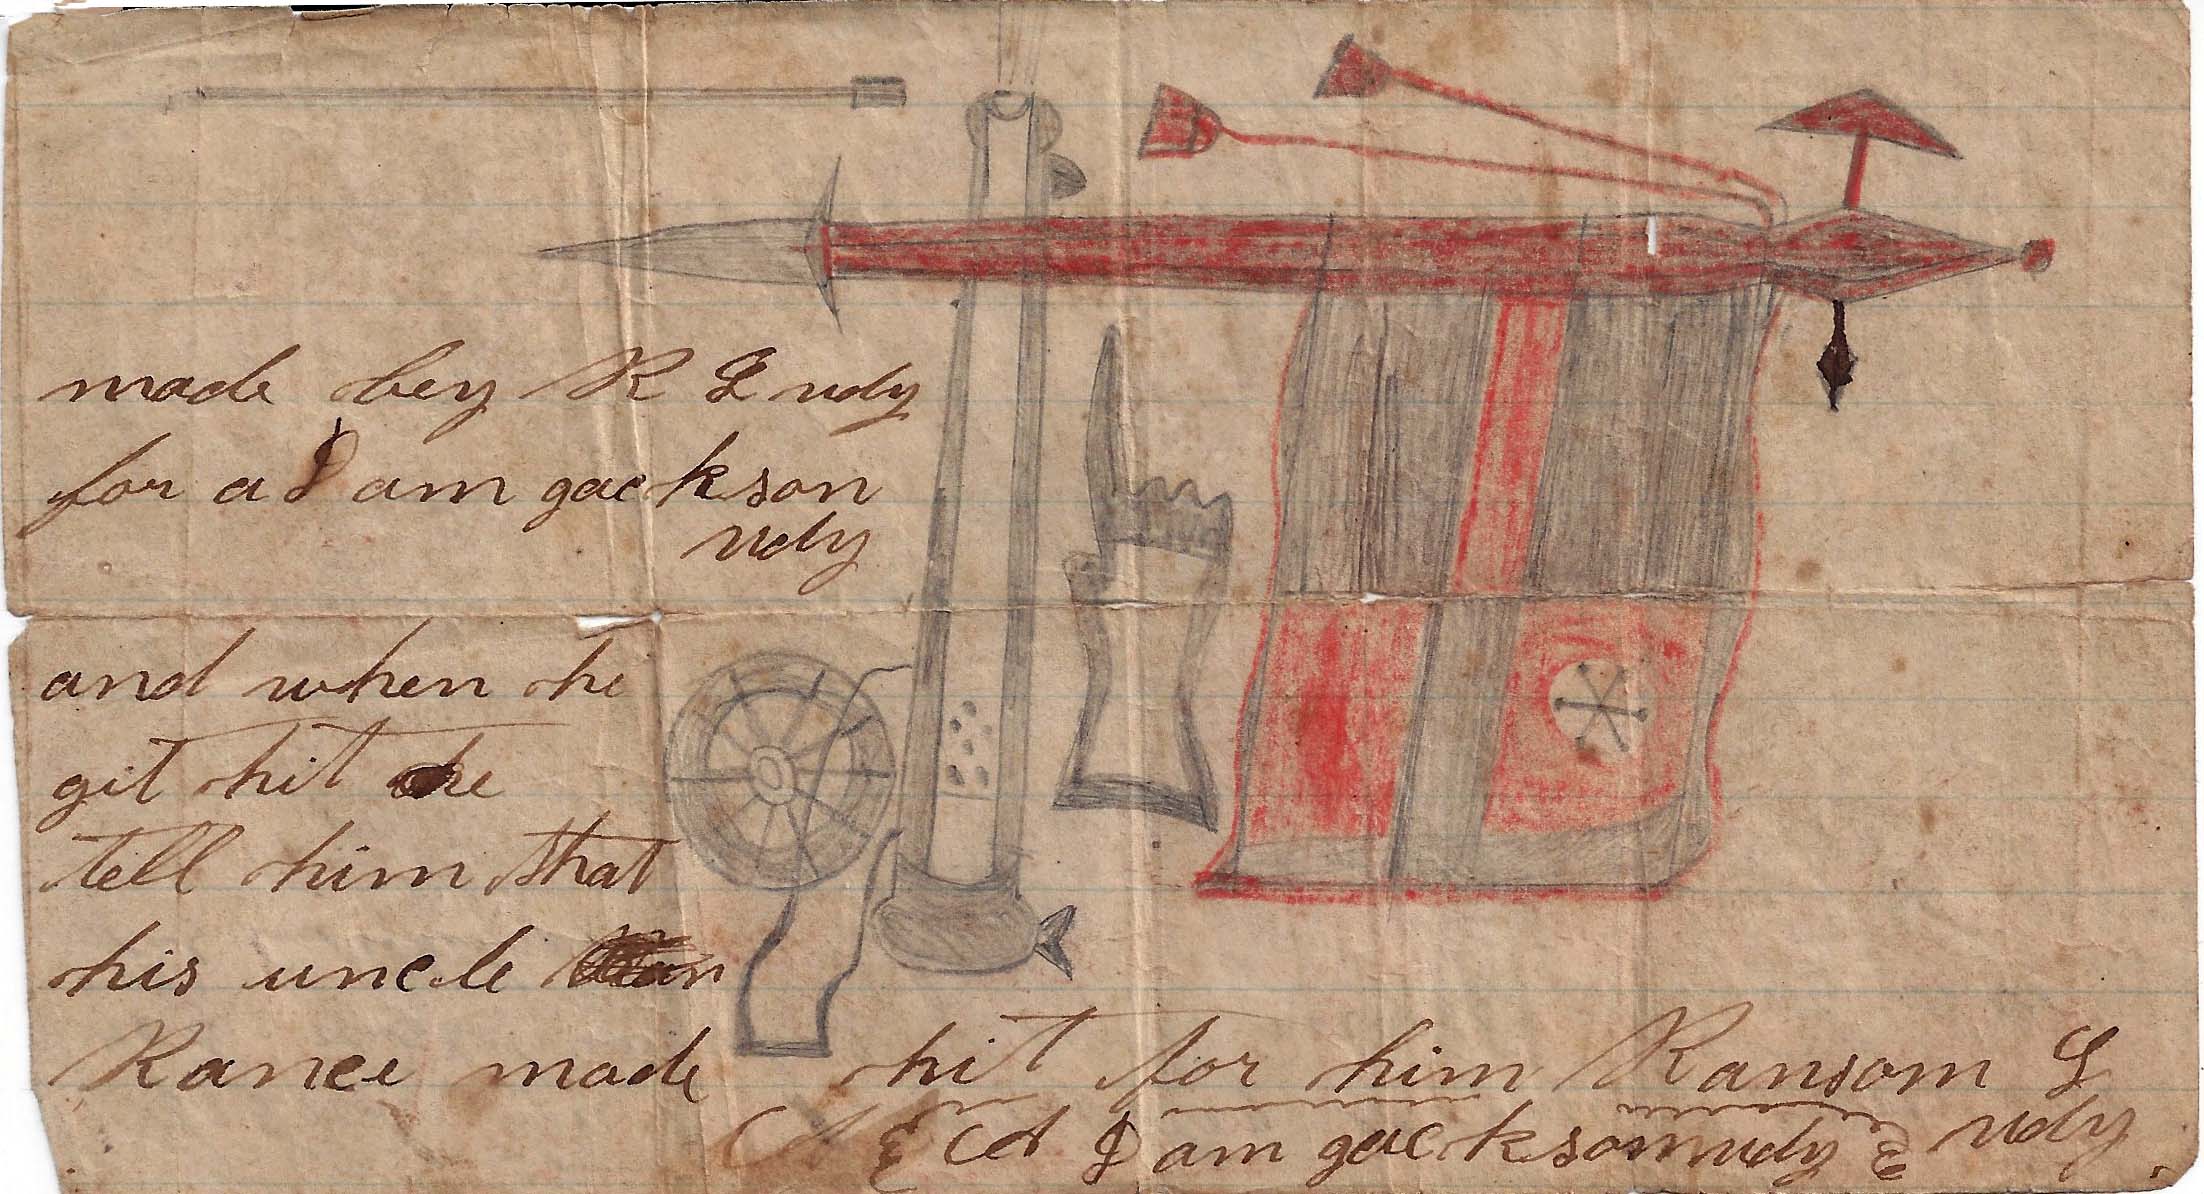 made bey R L udy
for a Dam gackson
udy
and when he
git hit he
tell him that
his uncle
Rance made hit for him Ransom L
udy
A Dam gackson udy